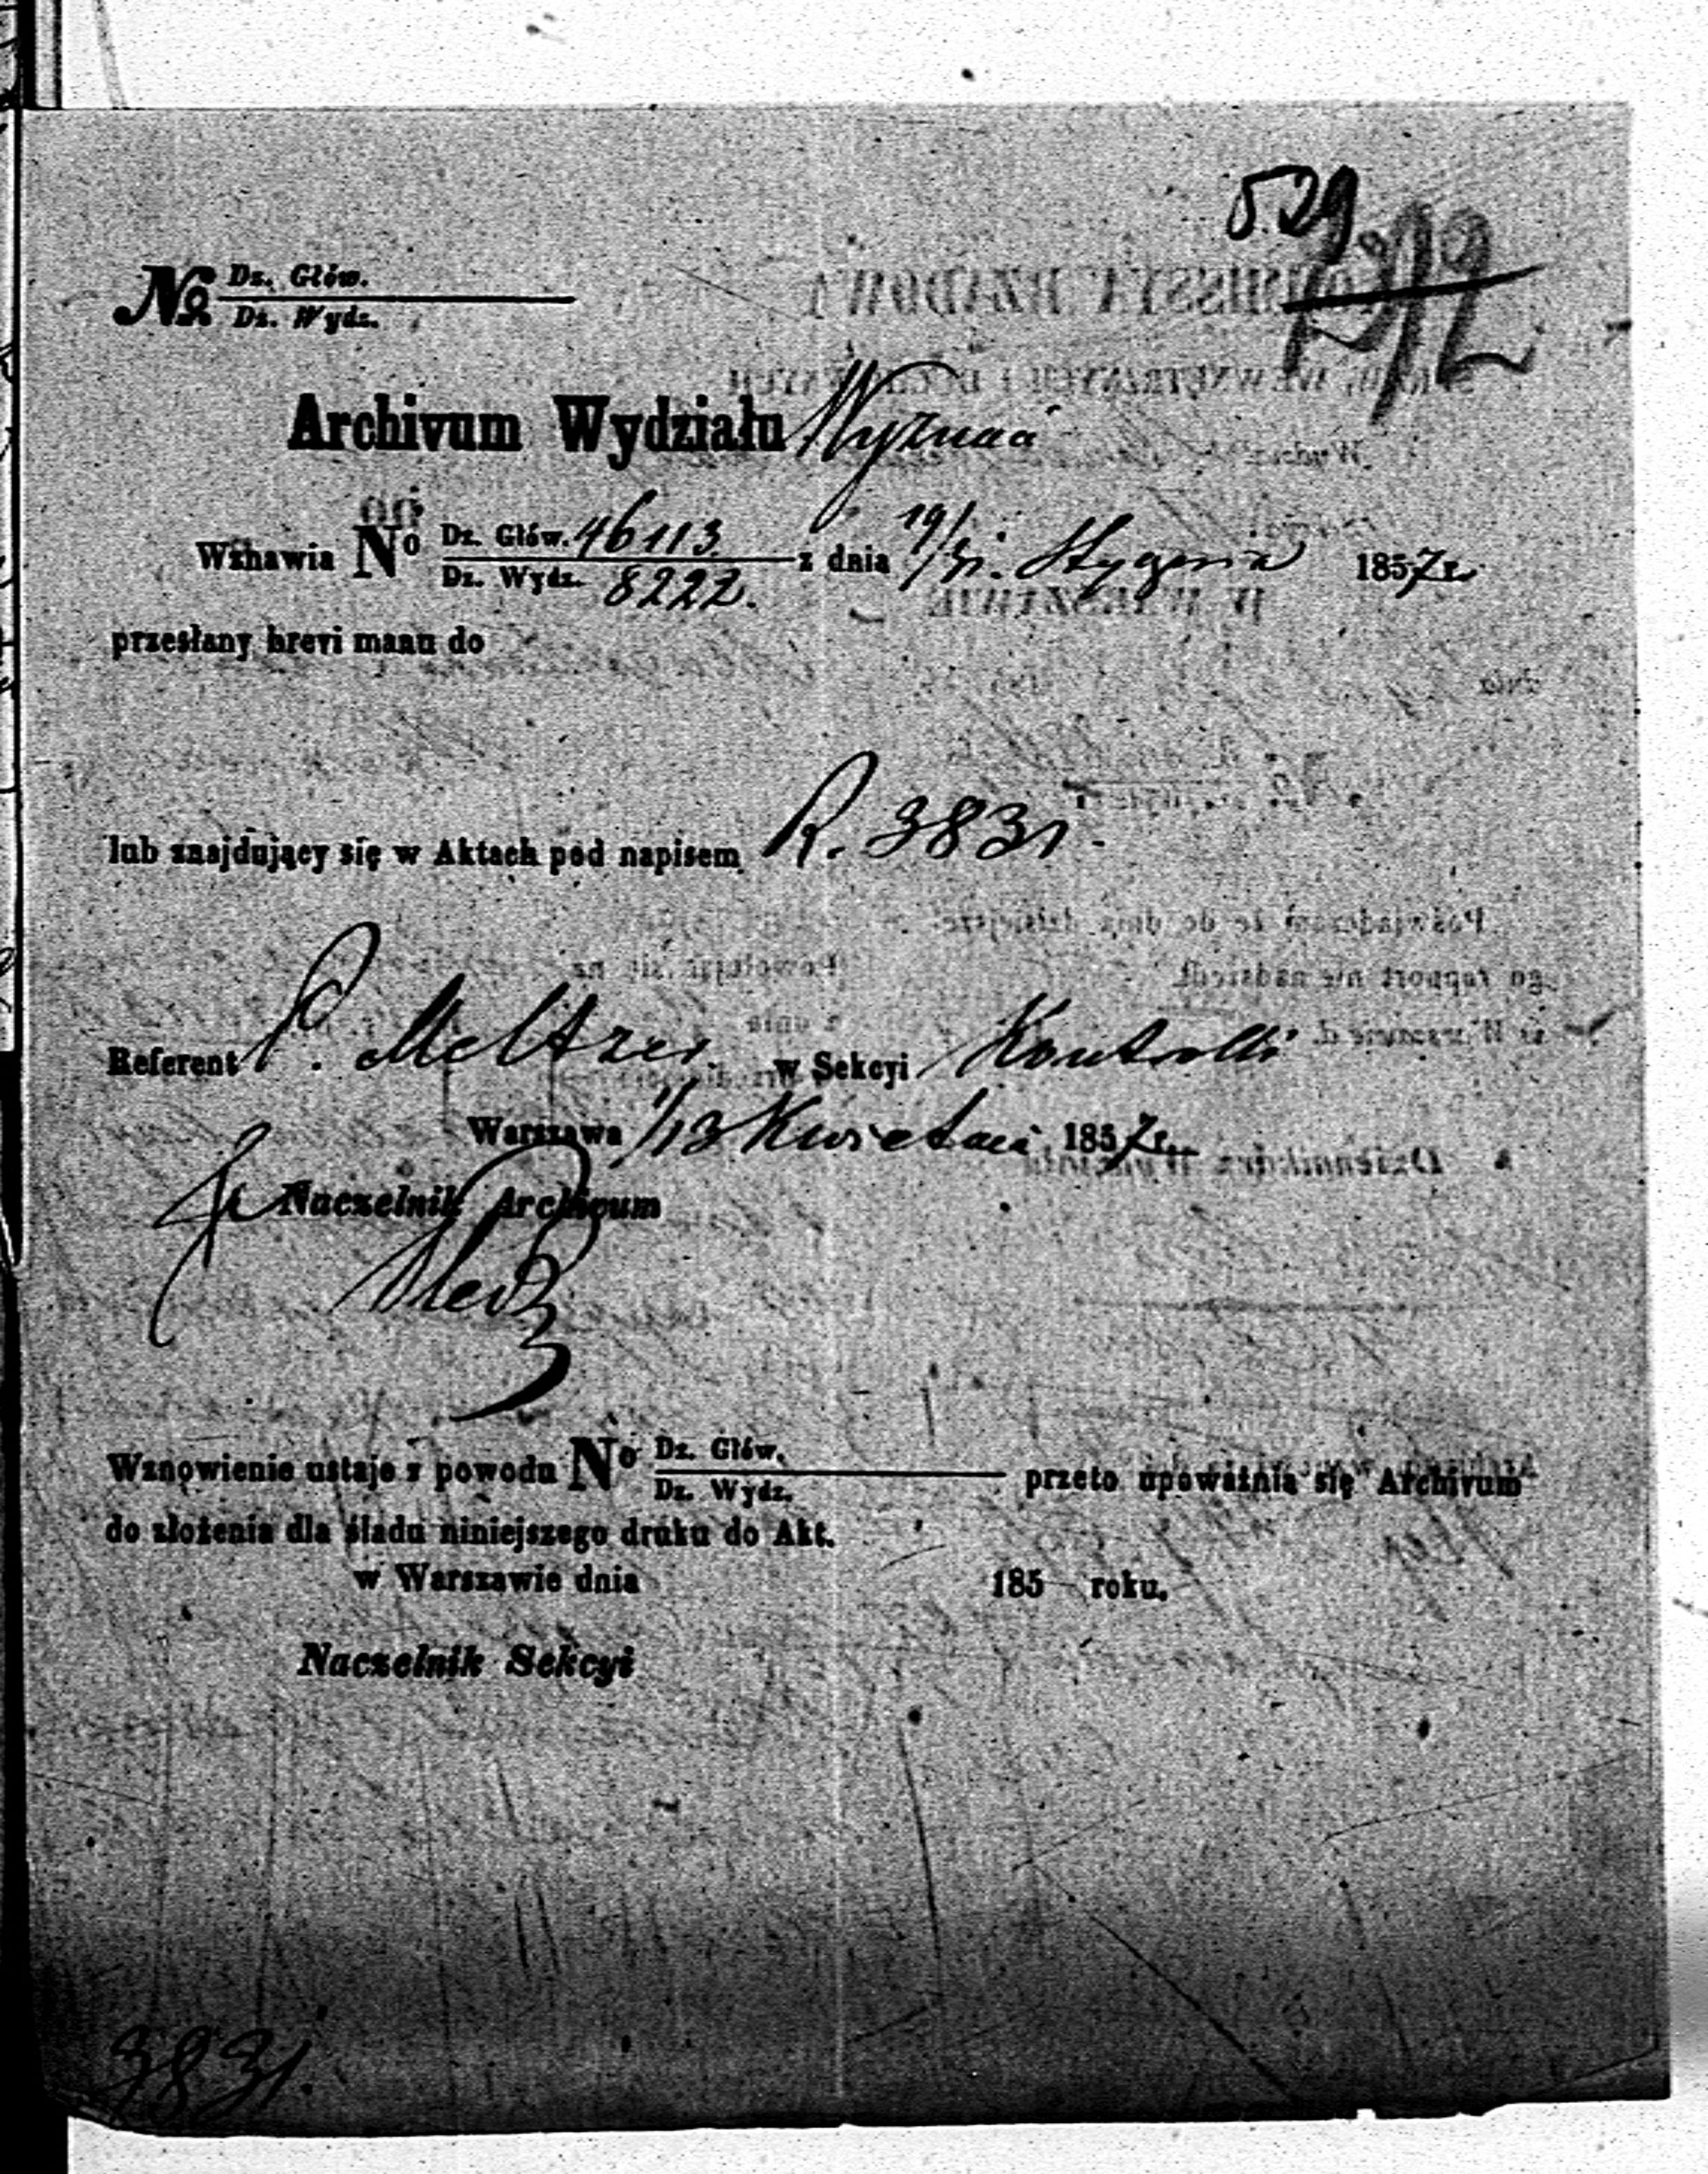 529
N<sup>o</sup> Dz. Głów.
Dz. Wydz.
Archivum Wydziału Wyznań
Wznawia N<sup>o</sup> Dz. Głów. 46113 z dnia 19/31 Stycznia 1857 r.
Dz. Wydz. 8222.
przesłany brevi manu do
lub znajdujący się w Aktach pod napisem R. 3831.
Referent P. Meltzer w Sekcyi Kontrolli
Warszawa 1/13 Kwietnia 1857 r.
Naczelnik Archivum
Wznowienie ustaje z powodu N<sup>o</sup> Dz. Głów. przeto upoważnia się Archivum
Dz. Wydz.
do złożenia dla śladu niniejszego druku do Akt.
w Warszawie dnia 185 roku.
Naczelnik Sekcyi
3831.